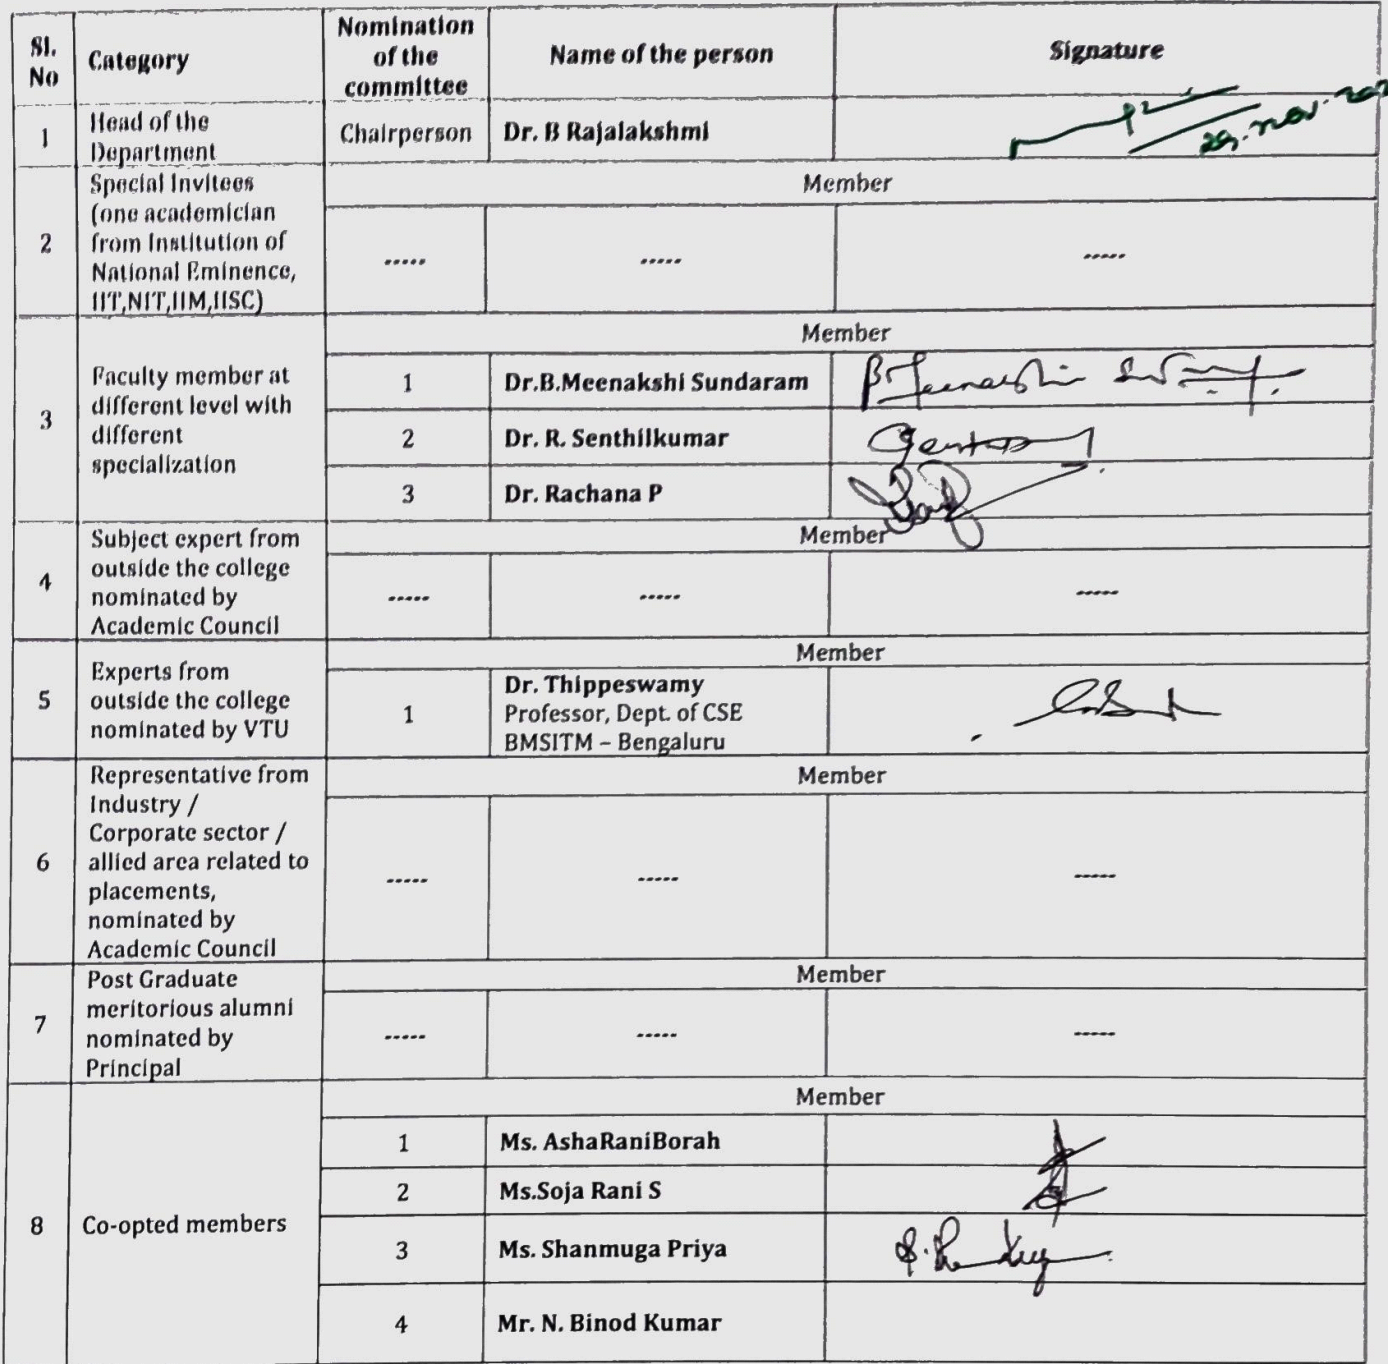 Sl. No
Category
Nomination of the committee
Name of the person
Signature
1
Head of the
Department
Chairperson
Dr. B Rajalakshmi
29. Nov.
2
Special Invitees
(one academician
from Institution of
National Eminence,
IIT,NIT,IIM,IISC)
Member
-----
-----
-----
3
Faculty member at
different level with
different
specialization
Member
1
Dr.B.Meenakshi Sundaram
B Meenakshi
2
Dr. R. Senthilkumar
3
Dr. Rachana P
4
Subject expert from
outside the college
nominated by
Academic Council
Member
-----
-----
-----
5
Experts from
outside the college
nominated by VTU
Member
1
Dr. Thippeswamy
Professor, Dept. of CSE
BMSITM – Bengaluru
6
Representative from
Industry /
Corporate sector /
allied area related to
placements,
nominated by
Academic Council
Member
-----
-----
-----
7
Post Graduate
meritorious alumni
nominated by
Principal
Member
-----
-----
-----
8
Co-opted members
Member
1
Ms. AshaRaniBorah
2
Ms.Soja Rani S
3
Ms. Shanmuga Priya
4
Mr. N. Binod Kumar